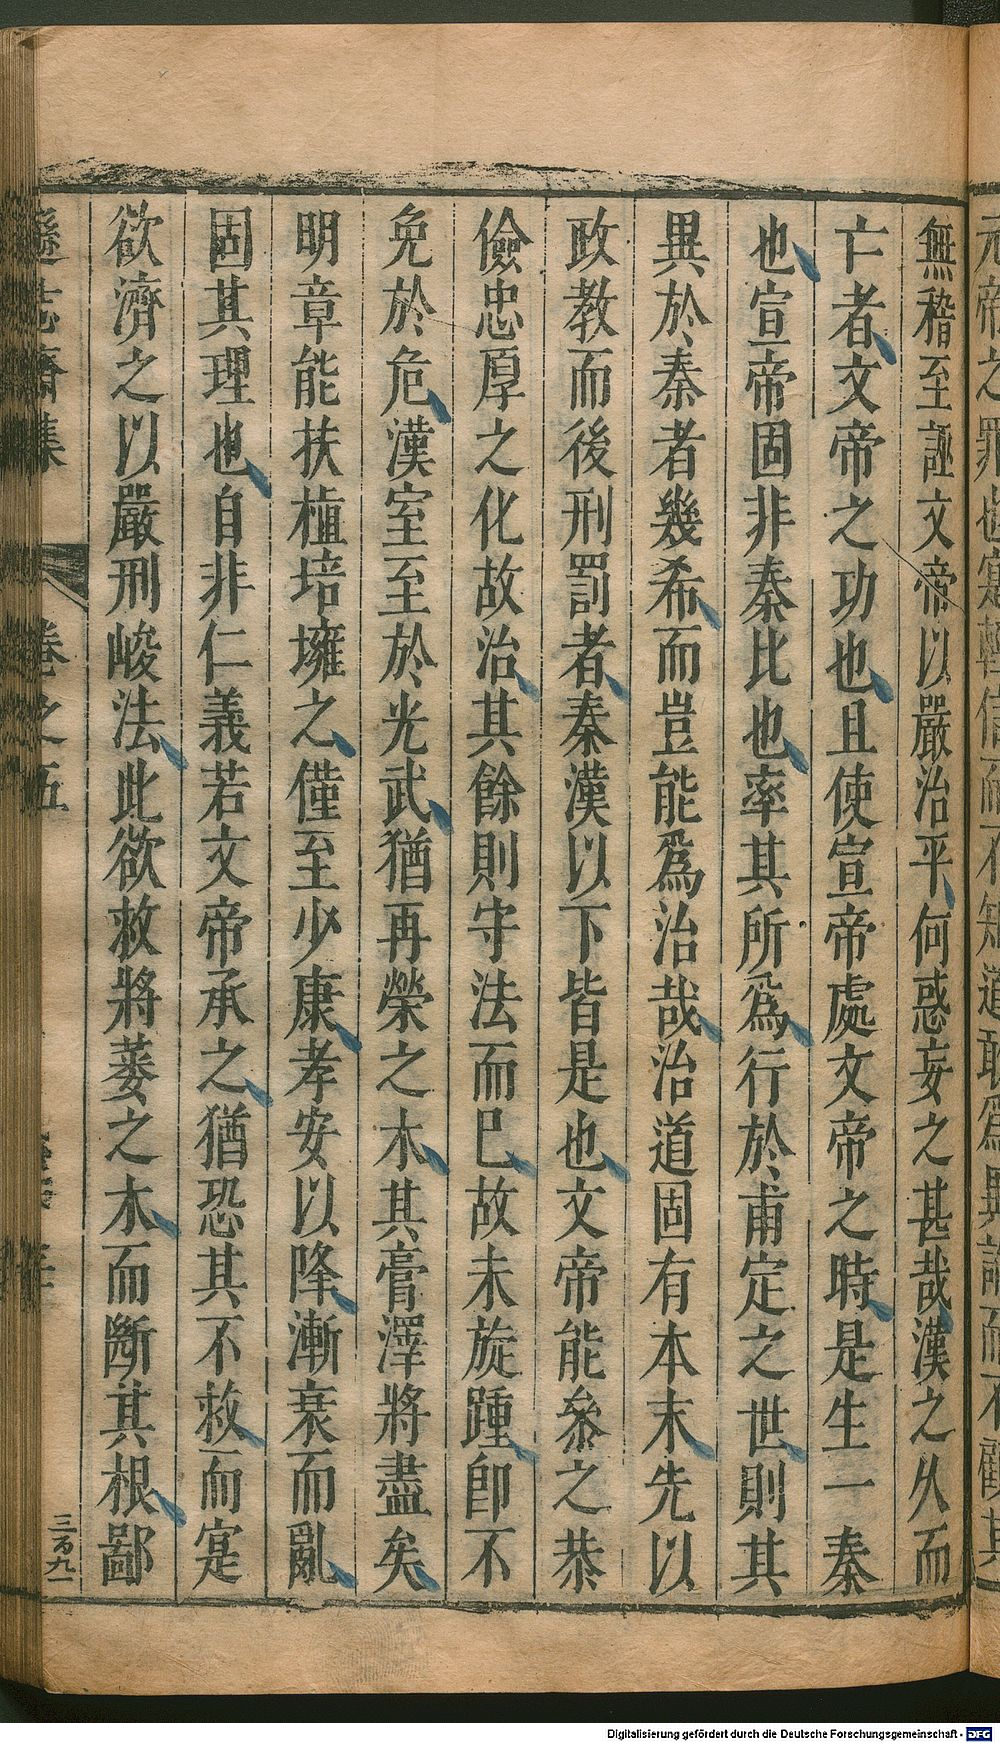 無稽至誣文帝以嚴治平何惑妄之甚哉漢之久而
亡者文帝之功也且使宣帝處文帝之時是生一秦
也宣帝固非秦比也率其所爲行於甫定之世則其
異於秦者幾希而豈能爲治哉治道固有本末先以
政教而後刑罰者秦漢以下皆是也文帝能叅之恭
儉忠厚之化故治其餘則守法而已故未旋踵卽不
免於危漢室至於光武猶再榮之木其膏澤將盡矣
明章能扶植培壅之僅至少康孝安以降漸衰而亂
固其理也自非仁義若文帝承之猶恐其不救而寔
欲濟之以嚴刑峻法此欲救將萎之木而斷其根鄙
遜志齋集 卷之五
三百九一
Digitalisierung gefördert durch die Deutsche Forschungsgemeinschaft - DFG